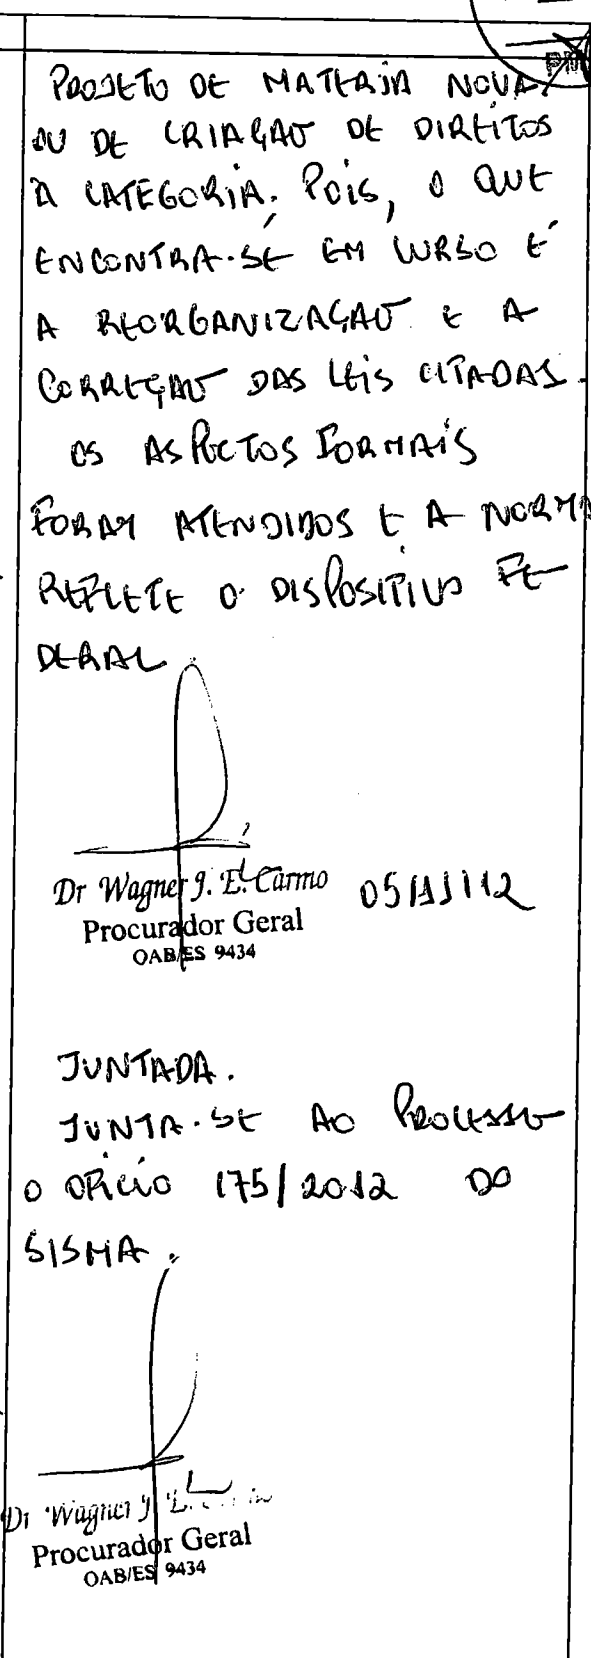 PROJETO DE MATERIA NOVA,
OU DE CRIAÇAO DE DIREITOS
A CATEGORIA. POIS, O QUE
ENCONTRA-SE EM CURSO É
A REORGANIZAÇAO E A
CORREÇAO DAS LEIS CITADAS.
OS ASPECTOS FORMAIS
FORAM ATENDIDOS E A NORMA
REFLETE O DISPOSITIVO FE
DERAL
Dr Wagner J. E. Carmo 05/11/12
Procurador Geral
OAB/ES 9434
JUNTADA.
JUNTA-SE AO PROCESSO
O OFICIO 175/2012 DO
SISMA.
Dr Wagner J. E.
Procurador Geral
OAB/ES 9434